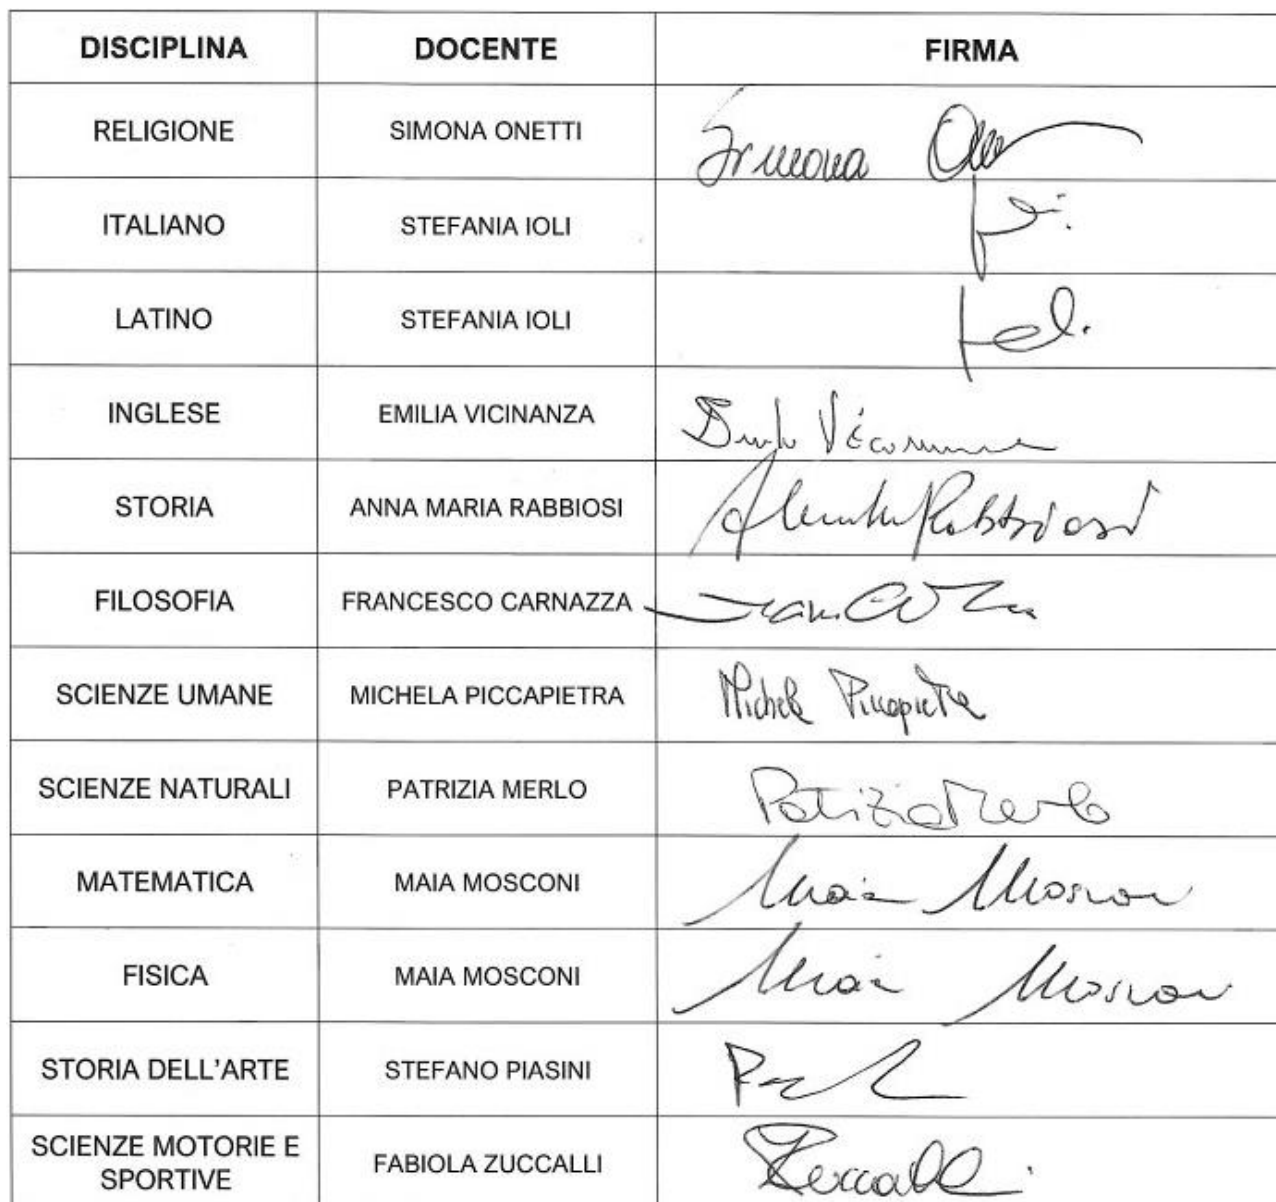 DISCIPLINA DOCENTE FIRMA
RELIGIONE SIMONA ONETTI Simona
ITALIANO STEFANIA IOLI
LATINO STEFANIA IOLI
INGLESE EMILIA VICINANZA
STORIA ANNA MARIA RABBIOSI Rabbiosi
FILOSOFIA FRANCESCO CARNAZZA
SCIENZE UMANE MICHELA PICCAPIETRA Michela Piccapietra
SCIENZE NATURALI PATRIZIA MERLO Patrizia Merlo
MATEMATICA MAIA MOSCONI Maia Mosconi
FISICA MAIA MOSCONI Maia Mosconi
STORIA DELL'ARTE STEFANO PIASINI
SCIENZE MOTORIE E
SPORTIVE FABIOLA ZUCCALLI Zuccalli